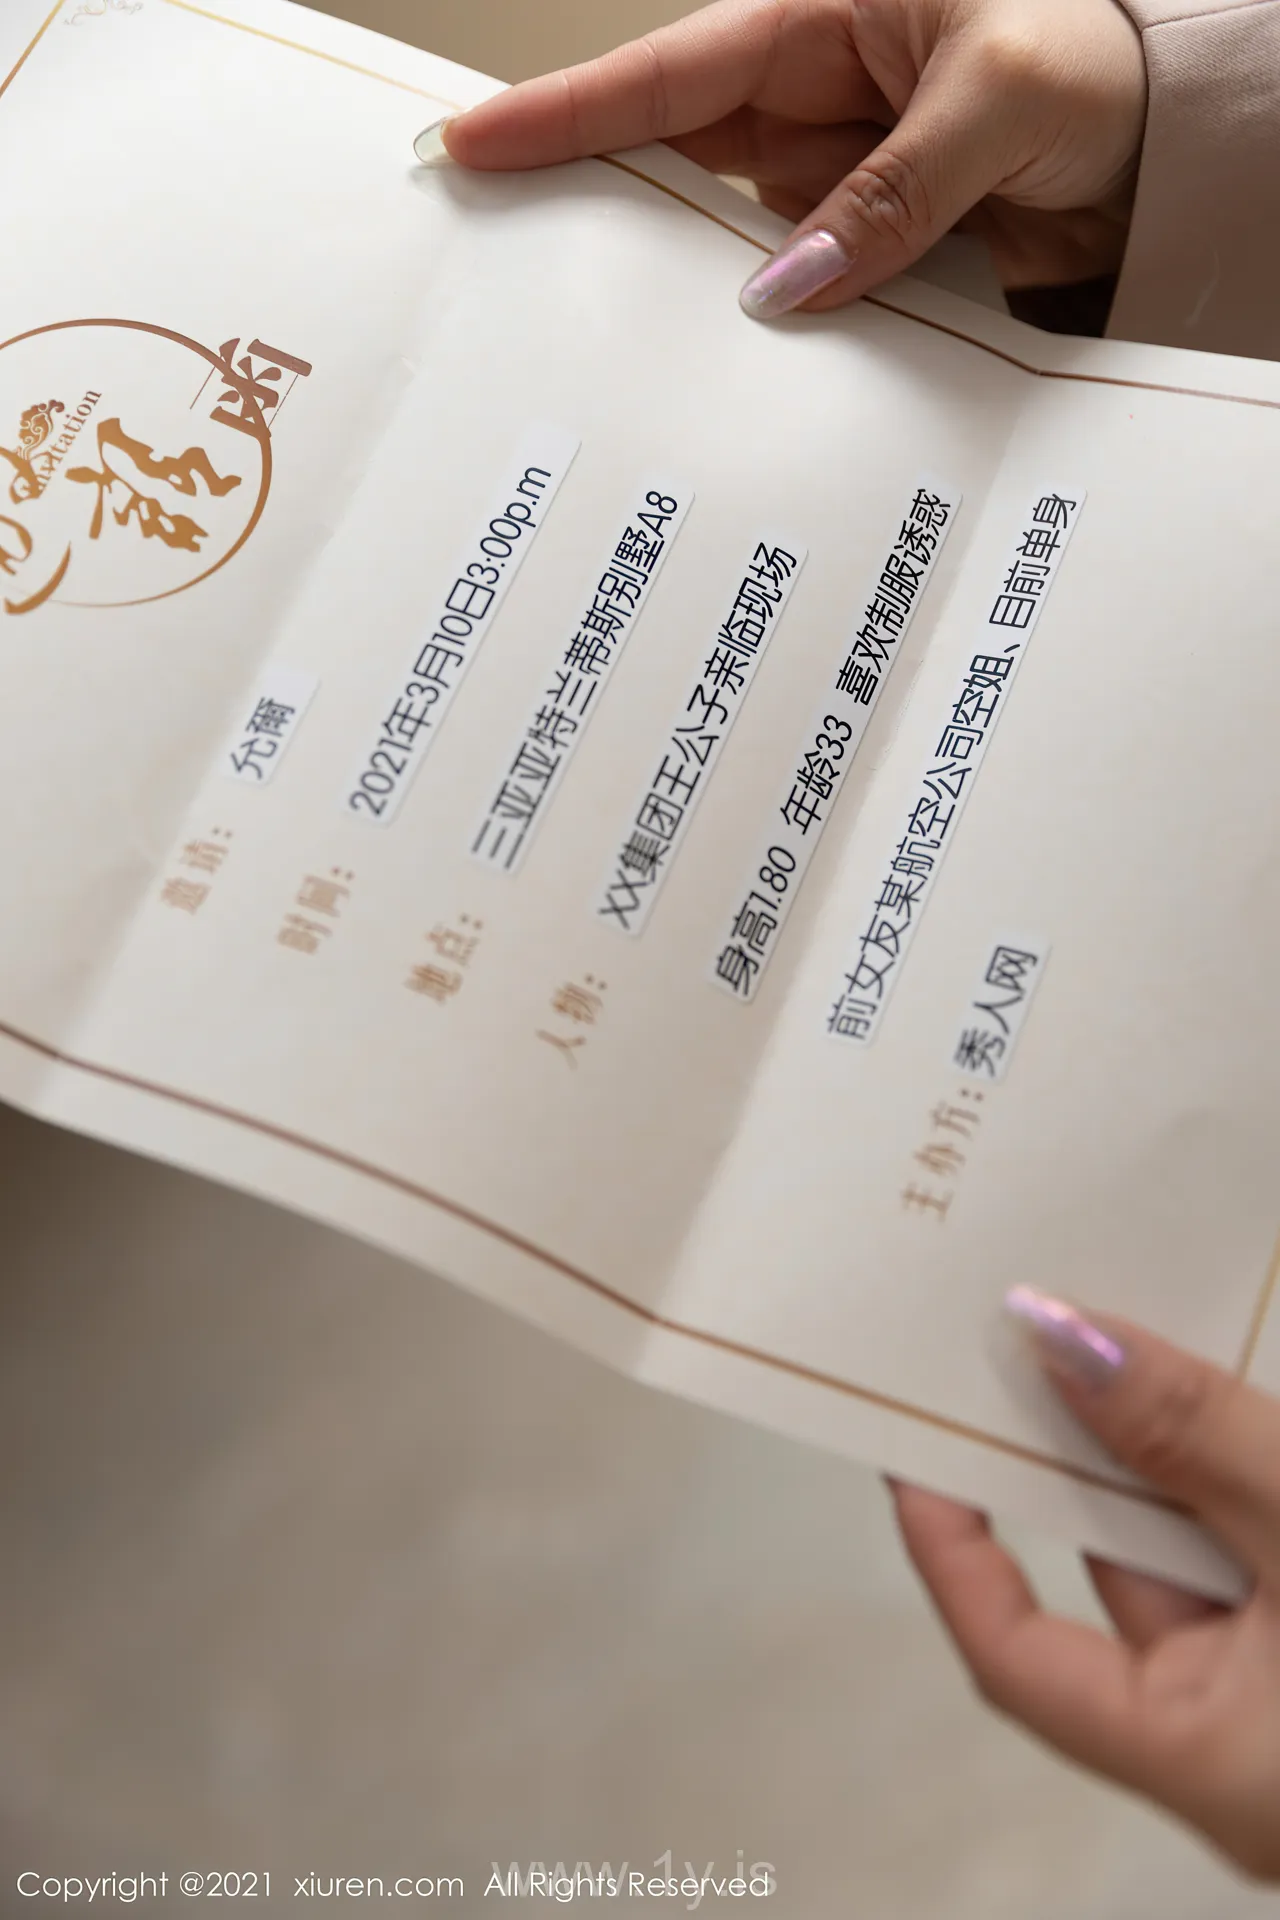 邀请函
Invitation
邀请：允爾
时间：2021年3月10日3:00p.m
地点：三亚亚特兰蒂斯别墅A8
人物：XX集团王公子亲临现场
身高1.80 年龄33 喜欢制服诱惑
前女友某航空公司空姐、目前单身
主办方：秀人网
www.1y.is
Copyright @2021 xiuren.com All Rights Reserved